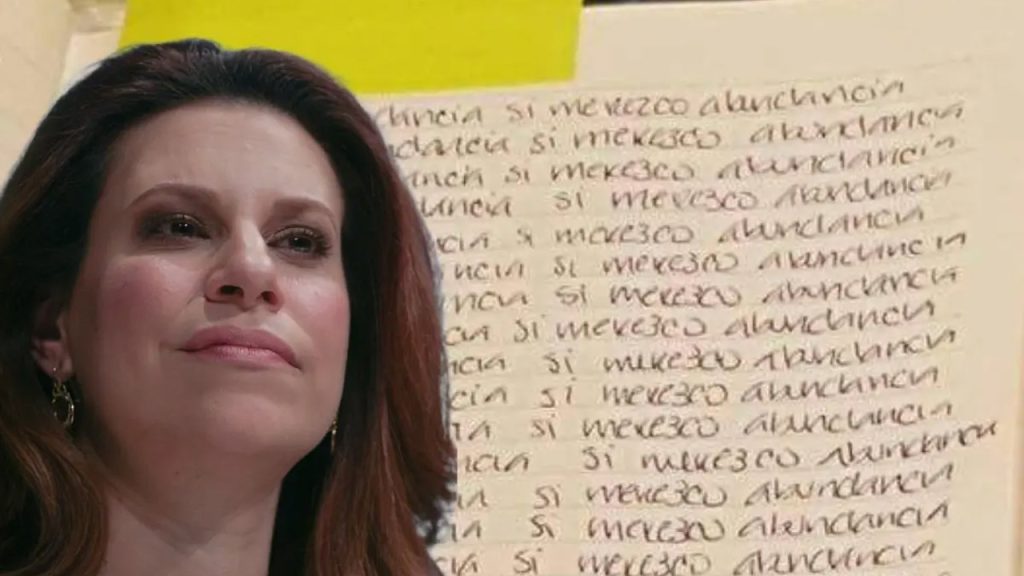 dancia si merezco abundancia
ndancia si merezco abundancia
ancia si merezco abundancia
ancia si merezco abundancia
cia si merezco abundancia
ncia si merezco abundancia
ncia si merezco abundancia
cia si merezco abundancia
ncia si merezco abundancia
cia si merezco abundancia
ia si merezco abundancia
ncia si merezco abundancia
ia si merezco abundancia
ia si merezco abundancia
cia si merezco abundancia